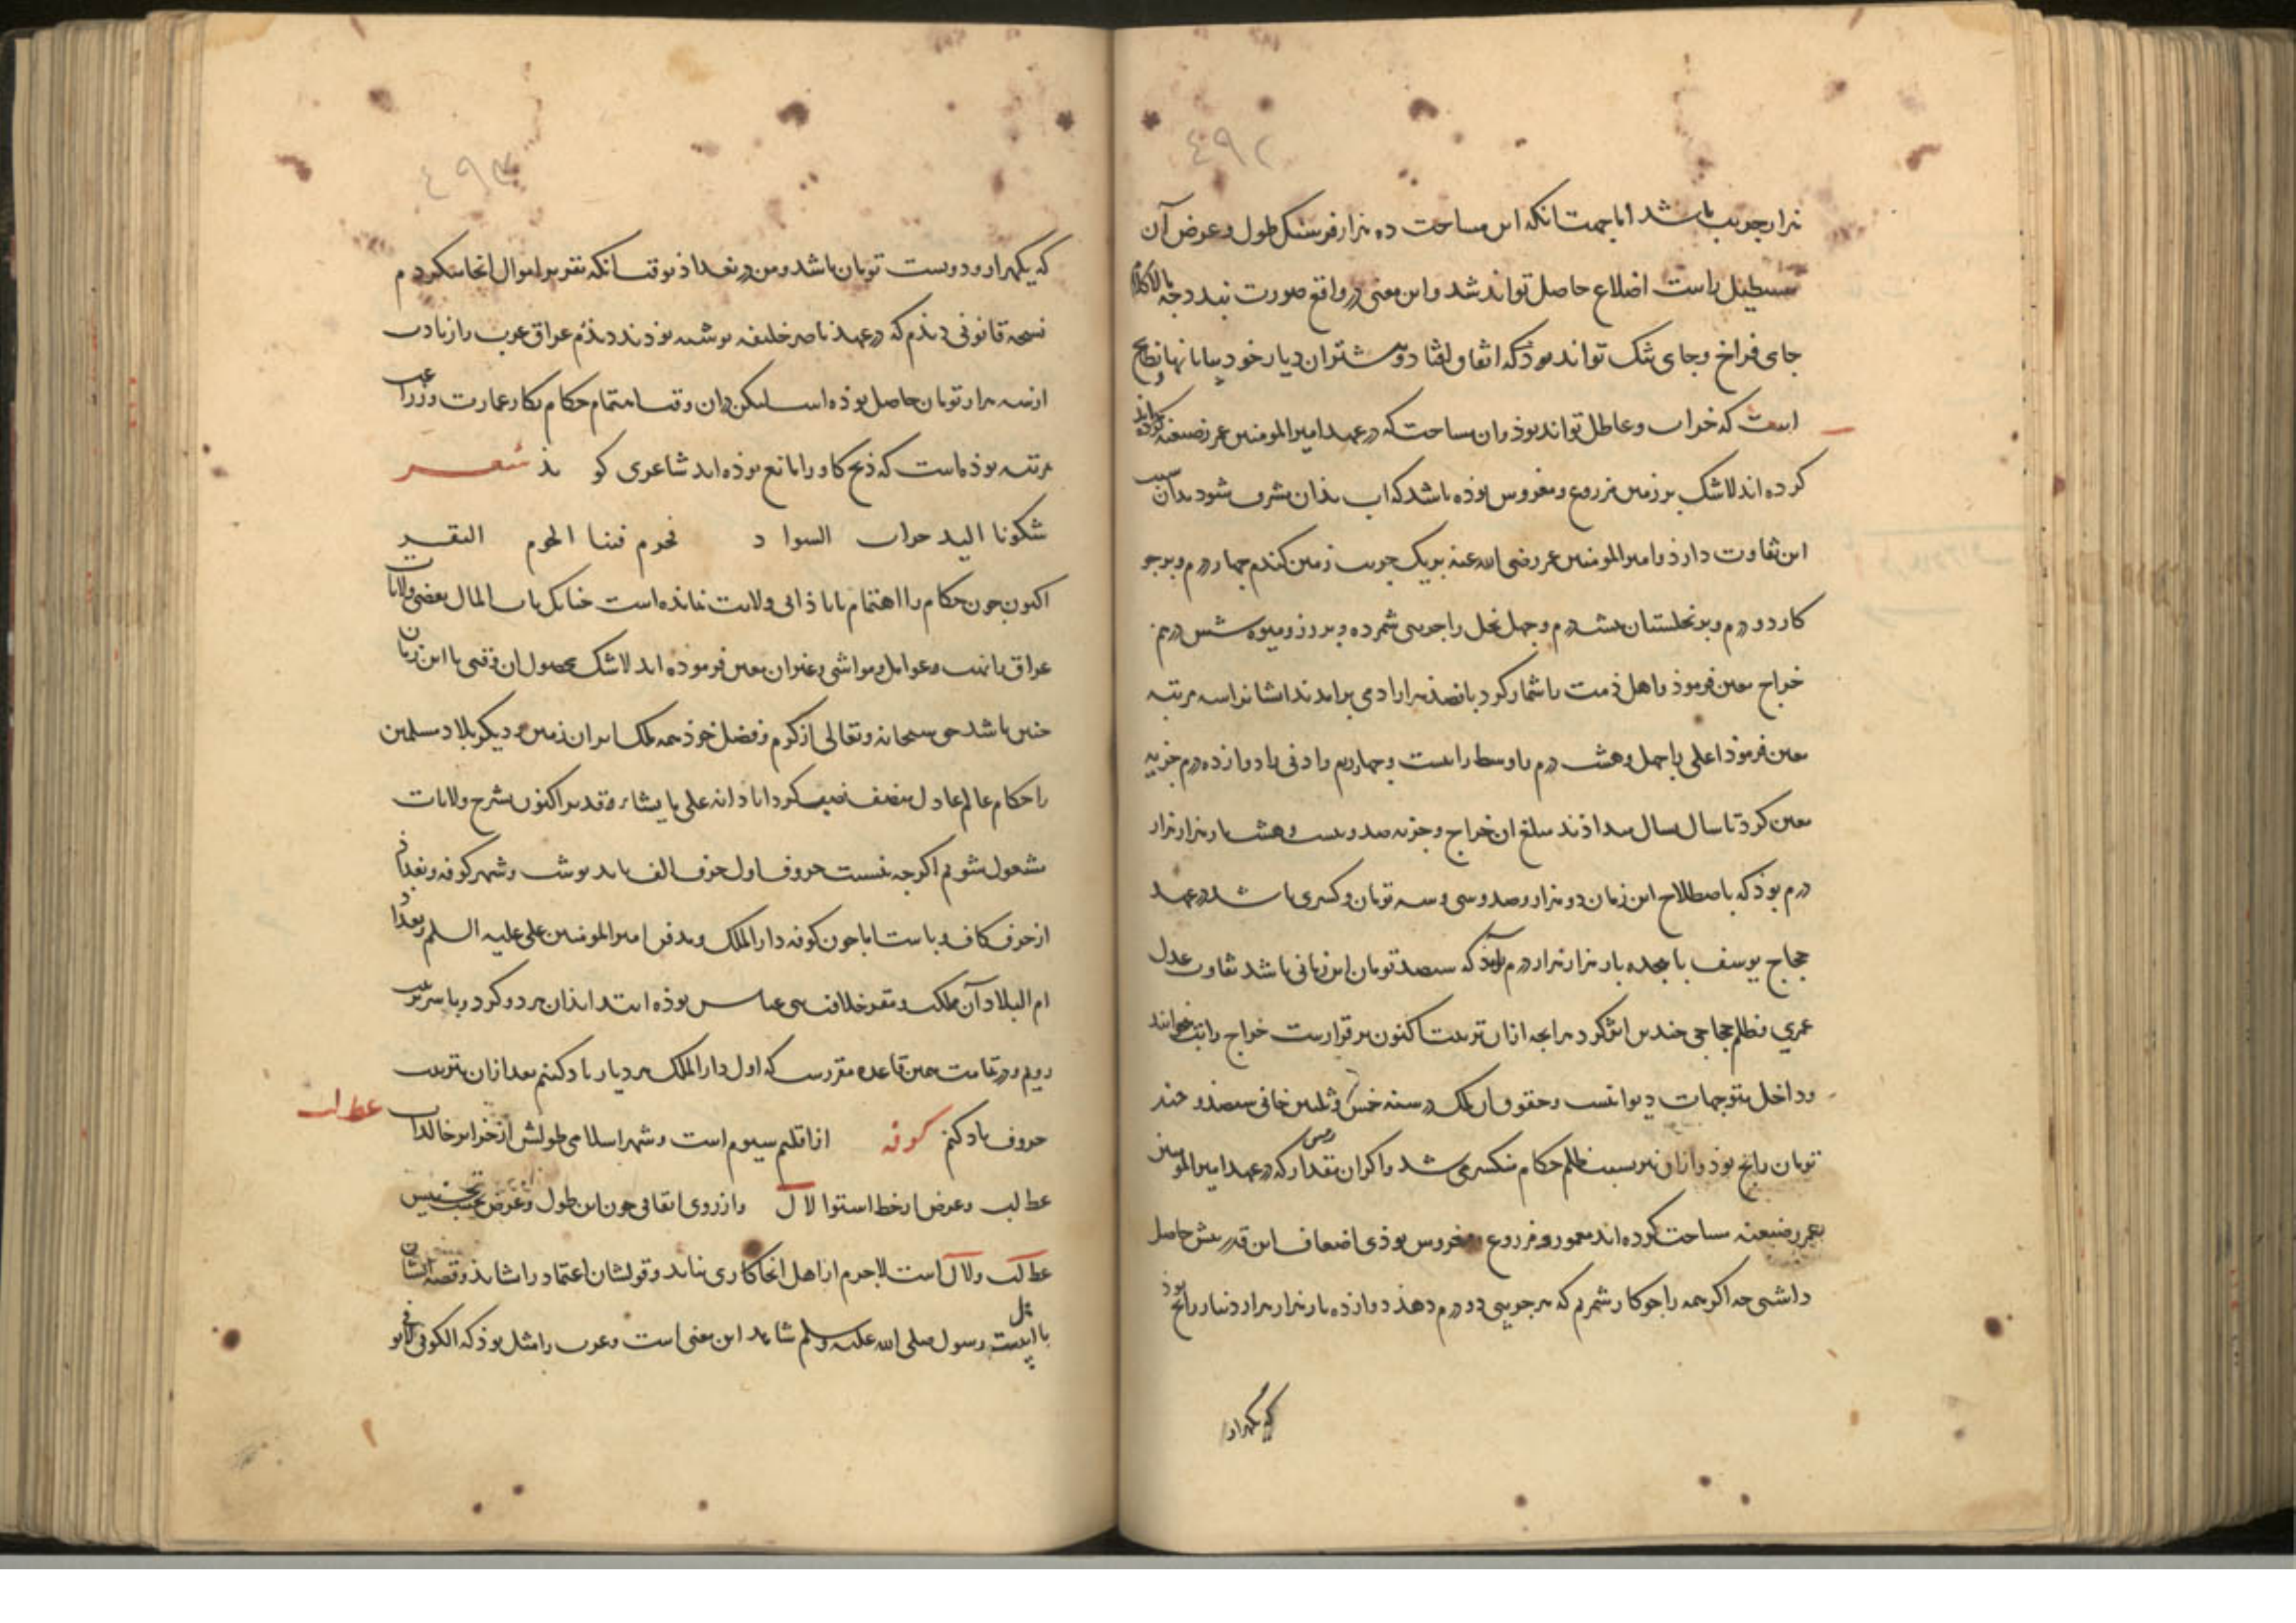 ٤٩٢
هزار جریب باشد اما جهت آنکه این مساحت ده هزار فرسنک طول و عرض آن
مستطیل راست اضلاع حاصل تواند شد و این معنی در واقع صورت نبندد چه بالا کلام
جای فراخ و جای تنک تواند بوذ که اتفاق افتد و
است که خراب و عاطل تواند بوذ و ان مساحت که در عهد امیر المومنین عمر رضیعنه کرده اند
کرده اند لاشک بر زمین مزروع و مغروس بوذه باشد که اب بذان مشرف شود بدان سبب
این تفاوت دارذ و امیر المومنین عمر رضی الله عنه بر یک جریب زمین کندم چهار درم و بر جو
کار دو درم و بر نخلستان هشت درم و چهل نخل را جریبی شمرده و بر رز و میوه شش درم
خراج معین فرموذ و اهل ذمت را شمار کرد پانصد هزار ادمی برامدند ایشانرا سه مرتبه
معین فرموذ اعلی را چهل و هشت درم و اوسط را بیست و چهار درم و ادنی را دوازده درم جزیه
معین کرد تا سال بسال میداذند مبلغ ان خراج و جزیه صد و بیست و هشت بار هزار هزار
درم بوذ که باصطلاح این زمان دو هزار و صد و سی و سه تومان و کسری باشد در عهد
حجاج یوسف با هجده بار هزار هزار درم آمذ که سیصد تومان این زمانی باشد تفاوت عدل
عمری و ظلم حجاجی چندین اثر کرد هرانچه ازان تربیت اکنون بر قرارست خراج راتب خوانند
و داخل متوجهات دیوانیست و حقوق ان ملک در سنه خمس و ثلثین خانی سیصد و چند
تومان رایج بوذ و ازان نیز بسبب ظلم حکام منکسر می شد و اکر ان مقدار زمین که در عهد امیر المومنین
عمر رضیعنه مساحت کرده اند معمور و مزروع و مغروس بوذی اضعاف این قدر بیش حاصل
داشتی چه اکر همه را جو کار شمریم که هر جریبی دو درم دهذ دوازده بار هزار هزار دینار رایج بوذ
که یکهزار
٤٩٣
که یکهزار و دویست تومان باشد و من در بغداذ بوقت آنکه تقریر اموال انجا میکردم
نسخه قانونی دیذم که در عهد ناصر خلیفه نوشته بوذند دیذم عراق عرب را زیادت
از سه هزار تومان حاصل بوذه است لیکن دران وقت اهتمام حکام بکار عمارت و زراعت
مرتبه بوذه است که ذبح کاو را مانع بوذه اند شاعری کوید شعر
شکونا الیه خراب السواد فحرم فینا لحوم البقر
اکنون چون حکام را اهتمام باباذانی ولایت نمانده است چنانک باب المال بعضی ولایات
عراق بانیت و عوامل و مواشی و غیران معین فرموده اند لاشک محصول ان وقتی با این زمان
چنین باشد حق سبحانه و تعالی از کرم و فضل خوذ همه ملک ایران زمین و دیکر بلاد مسلمین
را حکام عالم عادل منصف نصیب کرداناد انه علی ما یشاء قدیر اکنون بشرح ولایات
مشغول شویم اکرچه نسبت حروف اول حرف الف باید نوشت و شهر کوفه و بغداد
از حرف کاف و باست اما چون کوفه دار الملک و مدفن امیر المومنین علی علیه السلم و بغداد
ام البلاد آن مملکت و مقر خلافت بنی عباس بوذه ابتدا بذان هر دو کرد و با سر ترتیب
رویم و در تمامت همین قاعده مقررست که اول دار الملک هر دیار یاد کنیم بعد ازان بترتیب
حروف یاد کنم کوفه از اقلیم سیوم است و شهر اسلامی طولش از جزایر خالدات
عط لب و عرض از خط استوا لا ل و از روی اتفاقی چون این طول و عرض بحسب تجنیس
عط لب و لا ل است لاجرم از اهل انجا کاری نیاید و قولشان اعتماد را نشاید و قصه ایشان
با اهل بیت رسول صلی الله علیه و سلم شاهد این معنی است و عرب را مثل بوذ که الکوفی لا یوفی